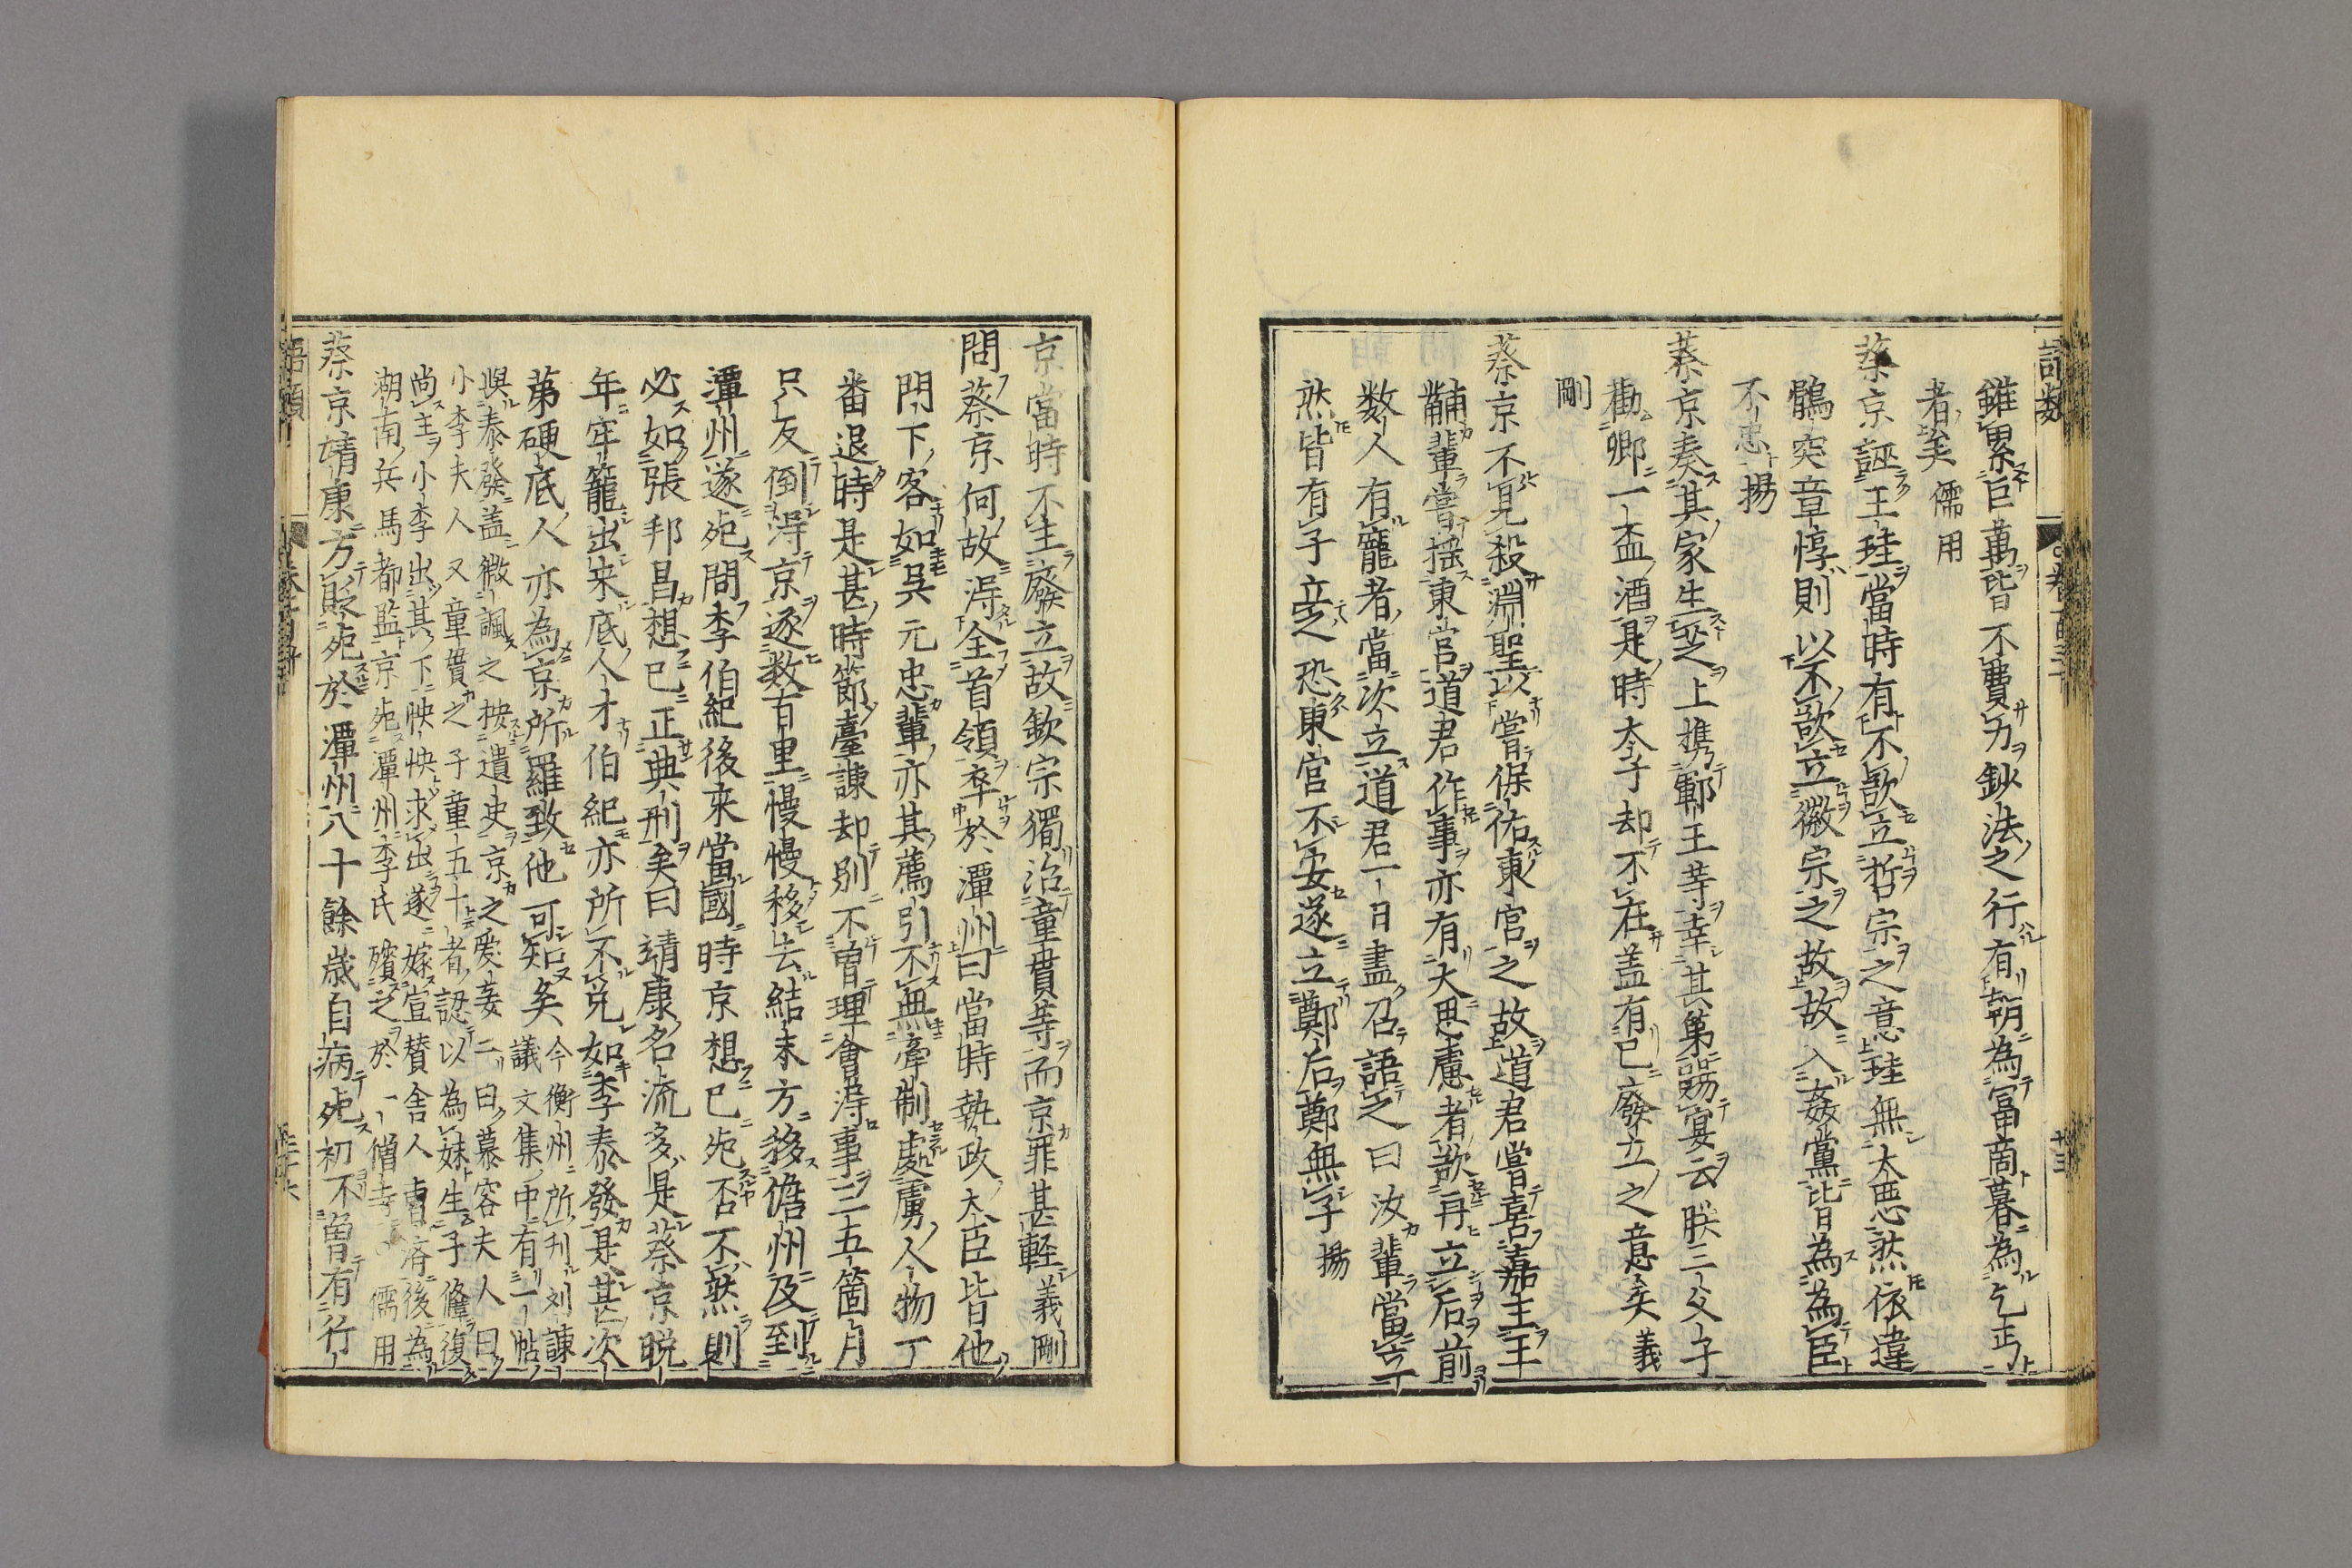 雖累巨萬皆不費力鈔法之行有朝為富商暮為乞丐
者矣儒用
蔡京誣王珪當時有不欲立哲宗之意珪無大惡然依違
鶻突章惇則以不欲立徽宗之故故入姦黨皆為為臣
不忠揚
蔡京奏其家生芝上攜鄆王等幸其第賜宴云朕三父子
勸卿一盃酒是時太子却不在盖有已廢立之意矣義
剛
蔡京不見殺淵聖以嘗保祐東宮之故道君嘗喜嘉王王
黼輩嘗揺東宮道君作事亦有大思慮者欲再立后前
数人有寵者當次立道君一日盡召語之曰汝輩當立
然皆有子立之恐東宮不安遂立鄭后鄭無子揚
京當時不主廢立故欽宗獨治童貫等而京罪甚輕義剛
問蔡京何故得全首領卒於潭州曰當時執政大臣皆他
門下客如呉元忠輩亦其薦引不無牽制處虜人物丁
番退時是甚時節臺諫却別不曽理會得事三五箇月
只反倒得京逐数百里慢慢移去結末方移儋州及到
潭州遂死問李伯紀後来當國時京想已死否不然則
必如張邦昌想已正典刑矣曰靖康名流多是蔡京晩
年牢籠出来底人才伯紀亦所不免如李泰發是甚次
第硬底人亦為京所羅致他可知矣今衡州所刊刘諫
議文集中有一帖
與泰發盖微諷之按遺史京之爱妾二曰慕容夫人曰
小李夫人又童貫之子童五十者認以為妹生子絛復
尚主小李出其下怏怏求出遂嫁宣賛舎人曹濟後為
湖南兵馬都監京死潭州李氏殯之於一僧寺儒用
蔡京靖康方貶死於潭州八十餘歳自病死初不曽有行